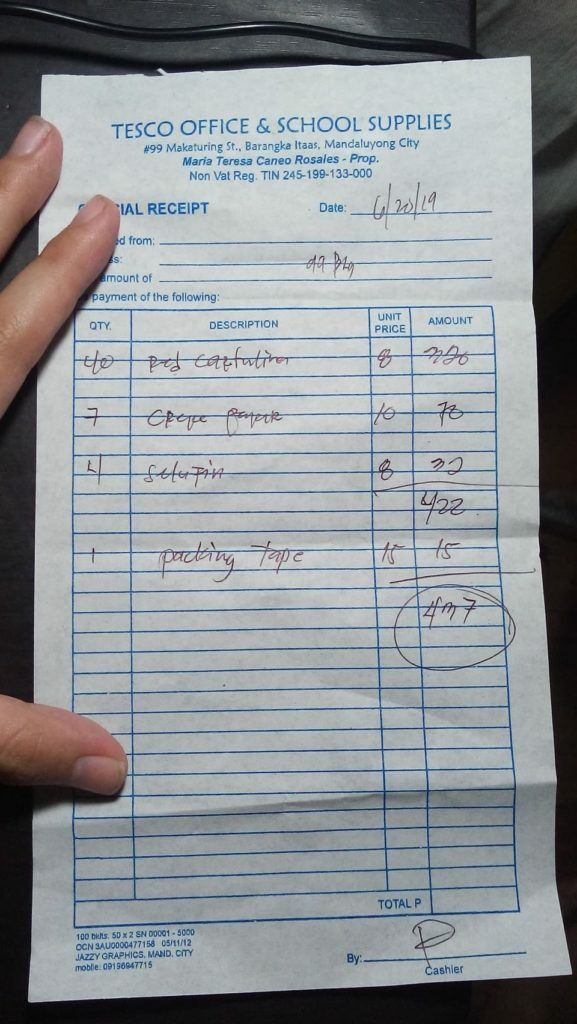 TESCO OFFICE & SCHOOL SUPPLIES
#99 Makaturing St., Barangka Itaas, Mandaluyong City
Maria Teresa Caneo Rosales - Prop.
Non Vat Reg. TIN 245-199-133-000
IAL RECEIPT Date: 6/20/19
ed from:
ss:
amount of
payment of the following:
QTY. DESCRIPTION UNIT PRICE AMOUNT
40 Red 8 320
7 crepe 10 70
4 8 32
422
1 packing Tape 15 15
437
TOTAL P
100 bklts. 50 x 2 SN 00001 - 5000
OCN 3AU0000477158 05/11/12
JAZZY GRAPHICS, MAND. CITY
mobile: 09196947715
By:
Cashier